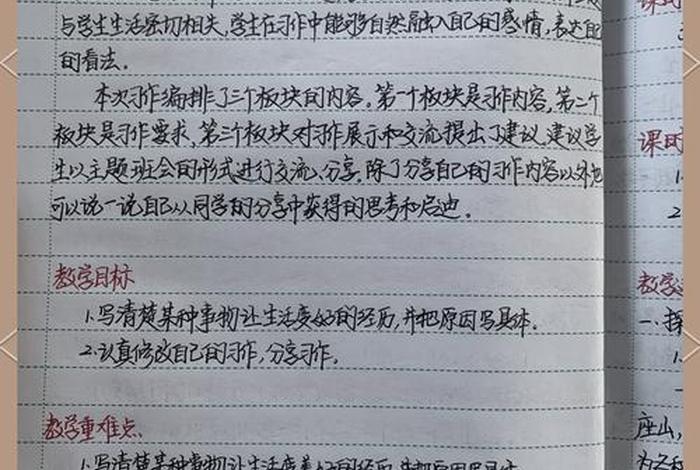 与学生生活密切相关,学生在习作中能够自然融入自己的感情,表达自己
的看法。
本次习作编排了三个板块的内容。第一个板块是习作内容,第二个
板块是习作要求,第三个板块对习作展示和交流提出了建议,建议学
生以主题班会的形式进行交流、分享。除了分享自己的习作内容以外,也
可以说一说自己从同学的分享中获得的思考和启迪。
教学目标
1.写清楚某种事物让生活变好的经历,并把原因写具体。
2.认真修改自己的习作,分享习作。
教学重难点
1.写清楚某种事物让生活变美好的经历,并把原因写具体
课时
课时
1.
2
教学
一、探
1.
座山,